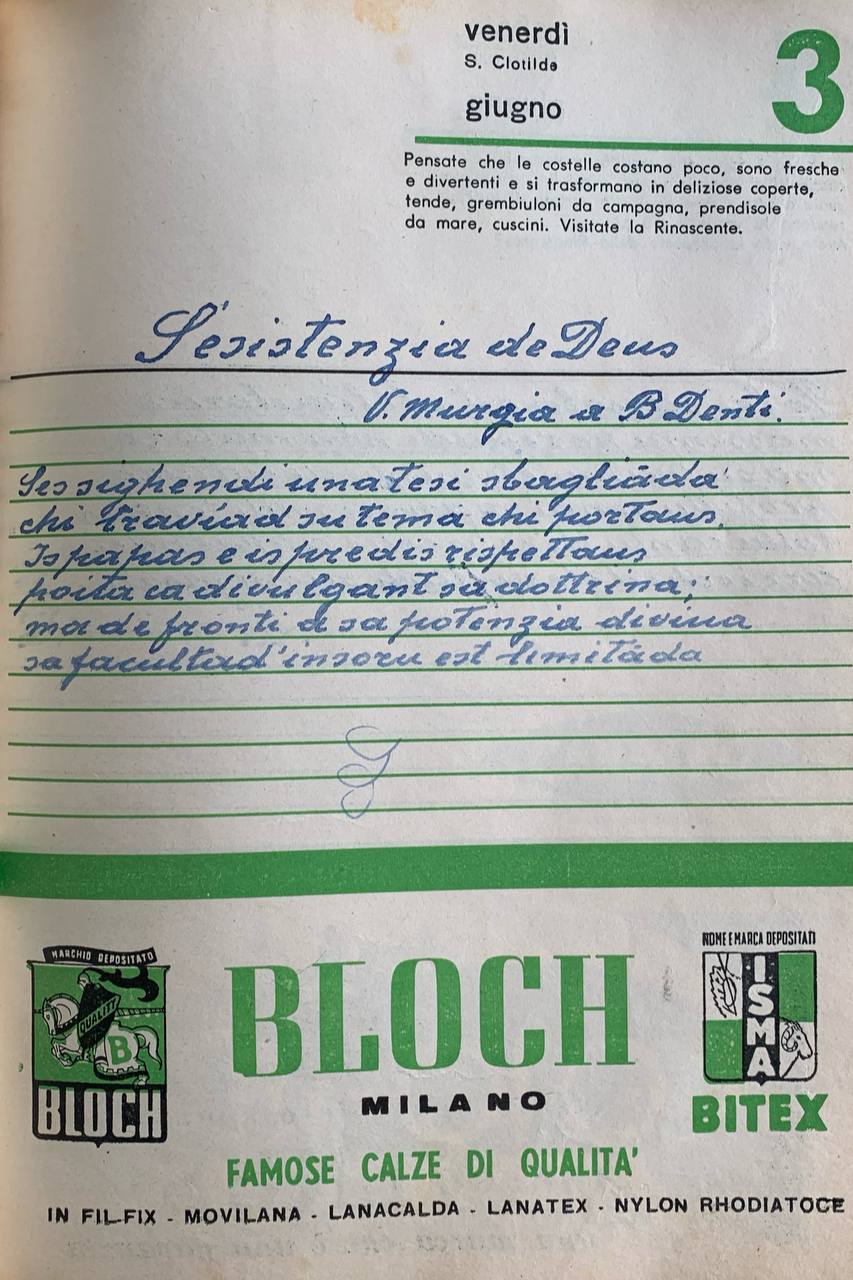 venerdì
S. Clotilde
giugno
3
Pensate che le costelle costano poco, sono fresche
e divertenti e si trasformano in deliziose coperte,
tende, grembiuloni da campagna, prendisole
da mare, cuscini. Visitate la Rinascente.
S'esistenzia de Deus
V. Murgia a B Denti.
Ses sighendi una tesi sbagliàda
chi traviad su tema chi portaus.
Is papas e is predis rispettaus
poita ca divulgant sa dottrina;
ma de fronti a sa potenzia divina
sa facultad' insoru est limitàda
MARCHIO DEPOSITATO
QUALITY
B
BLOCH
BLOCH
MILANO
NOME E MARCA DEPOSITATI
ISMA
BITEX
FAMOSE CALZE DI QUALITA'
IN FIL-FIX - MOVILANA - LANACALDA - LANATEX - NYLON RHODIATOCE